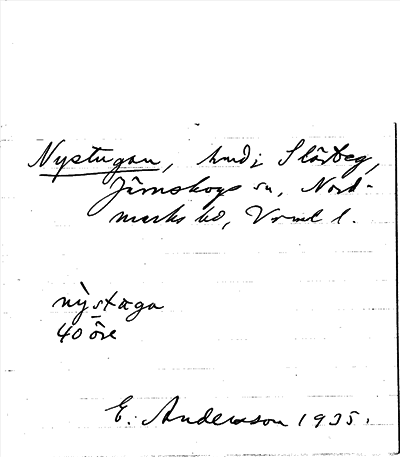 Nystugan, hmd i Slärteg,
Järnskogs sn, Nord-
marks hd, Vrml l.
nỳstæga
40 öre
E. Andersson 1935.